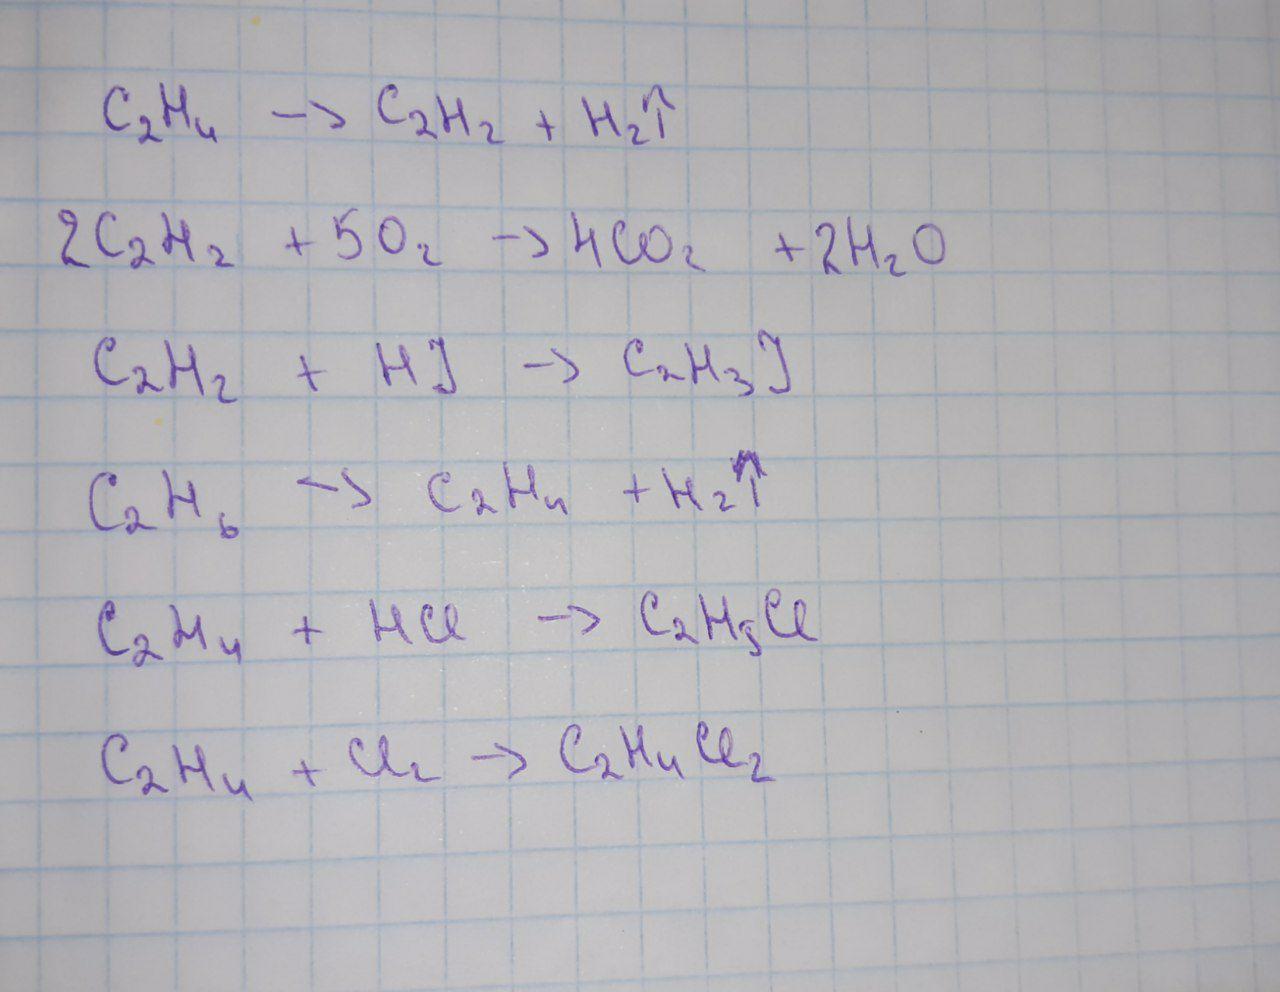 C₂H₄ → C₂H₂ + H₂↑
2C₂H₂ + 5O₂ → 4CO₂ + 2H₂O
C₂H₂ + HJ → C₂H₃J
C₂H₆ → C₂H₄ + H₂↑
C₂H₄ + HCl → C₂H₅Cl
C₂H₄ + Cl₂ → C₂H₄Cl₂